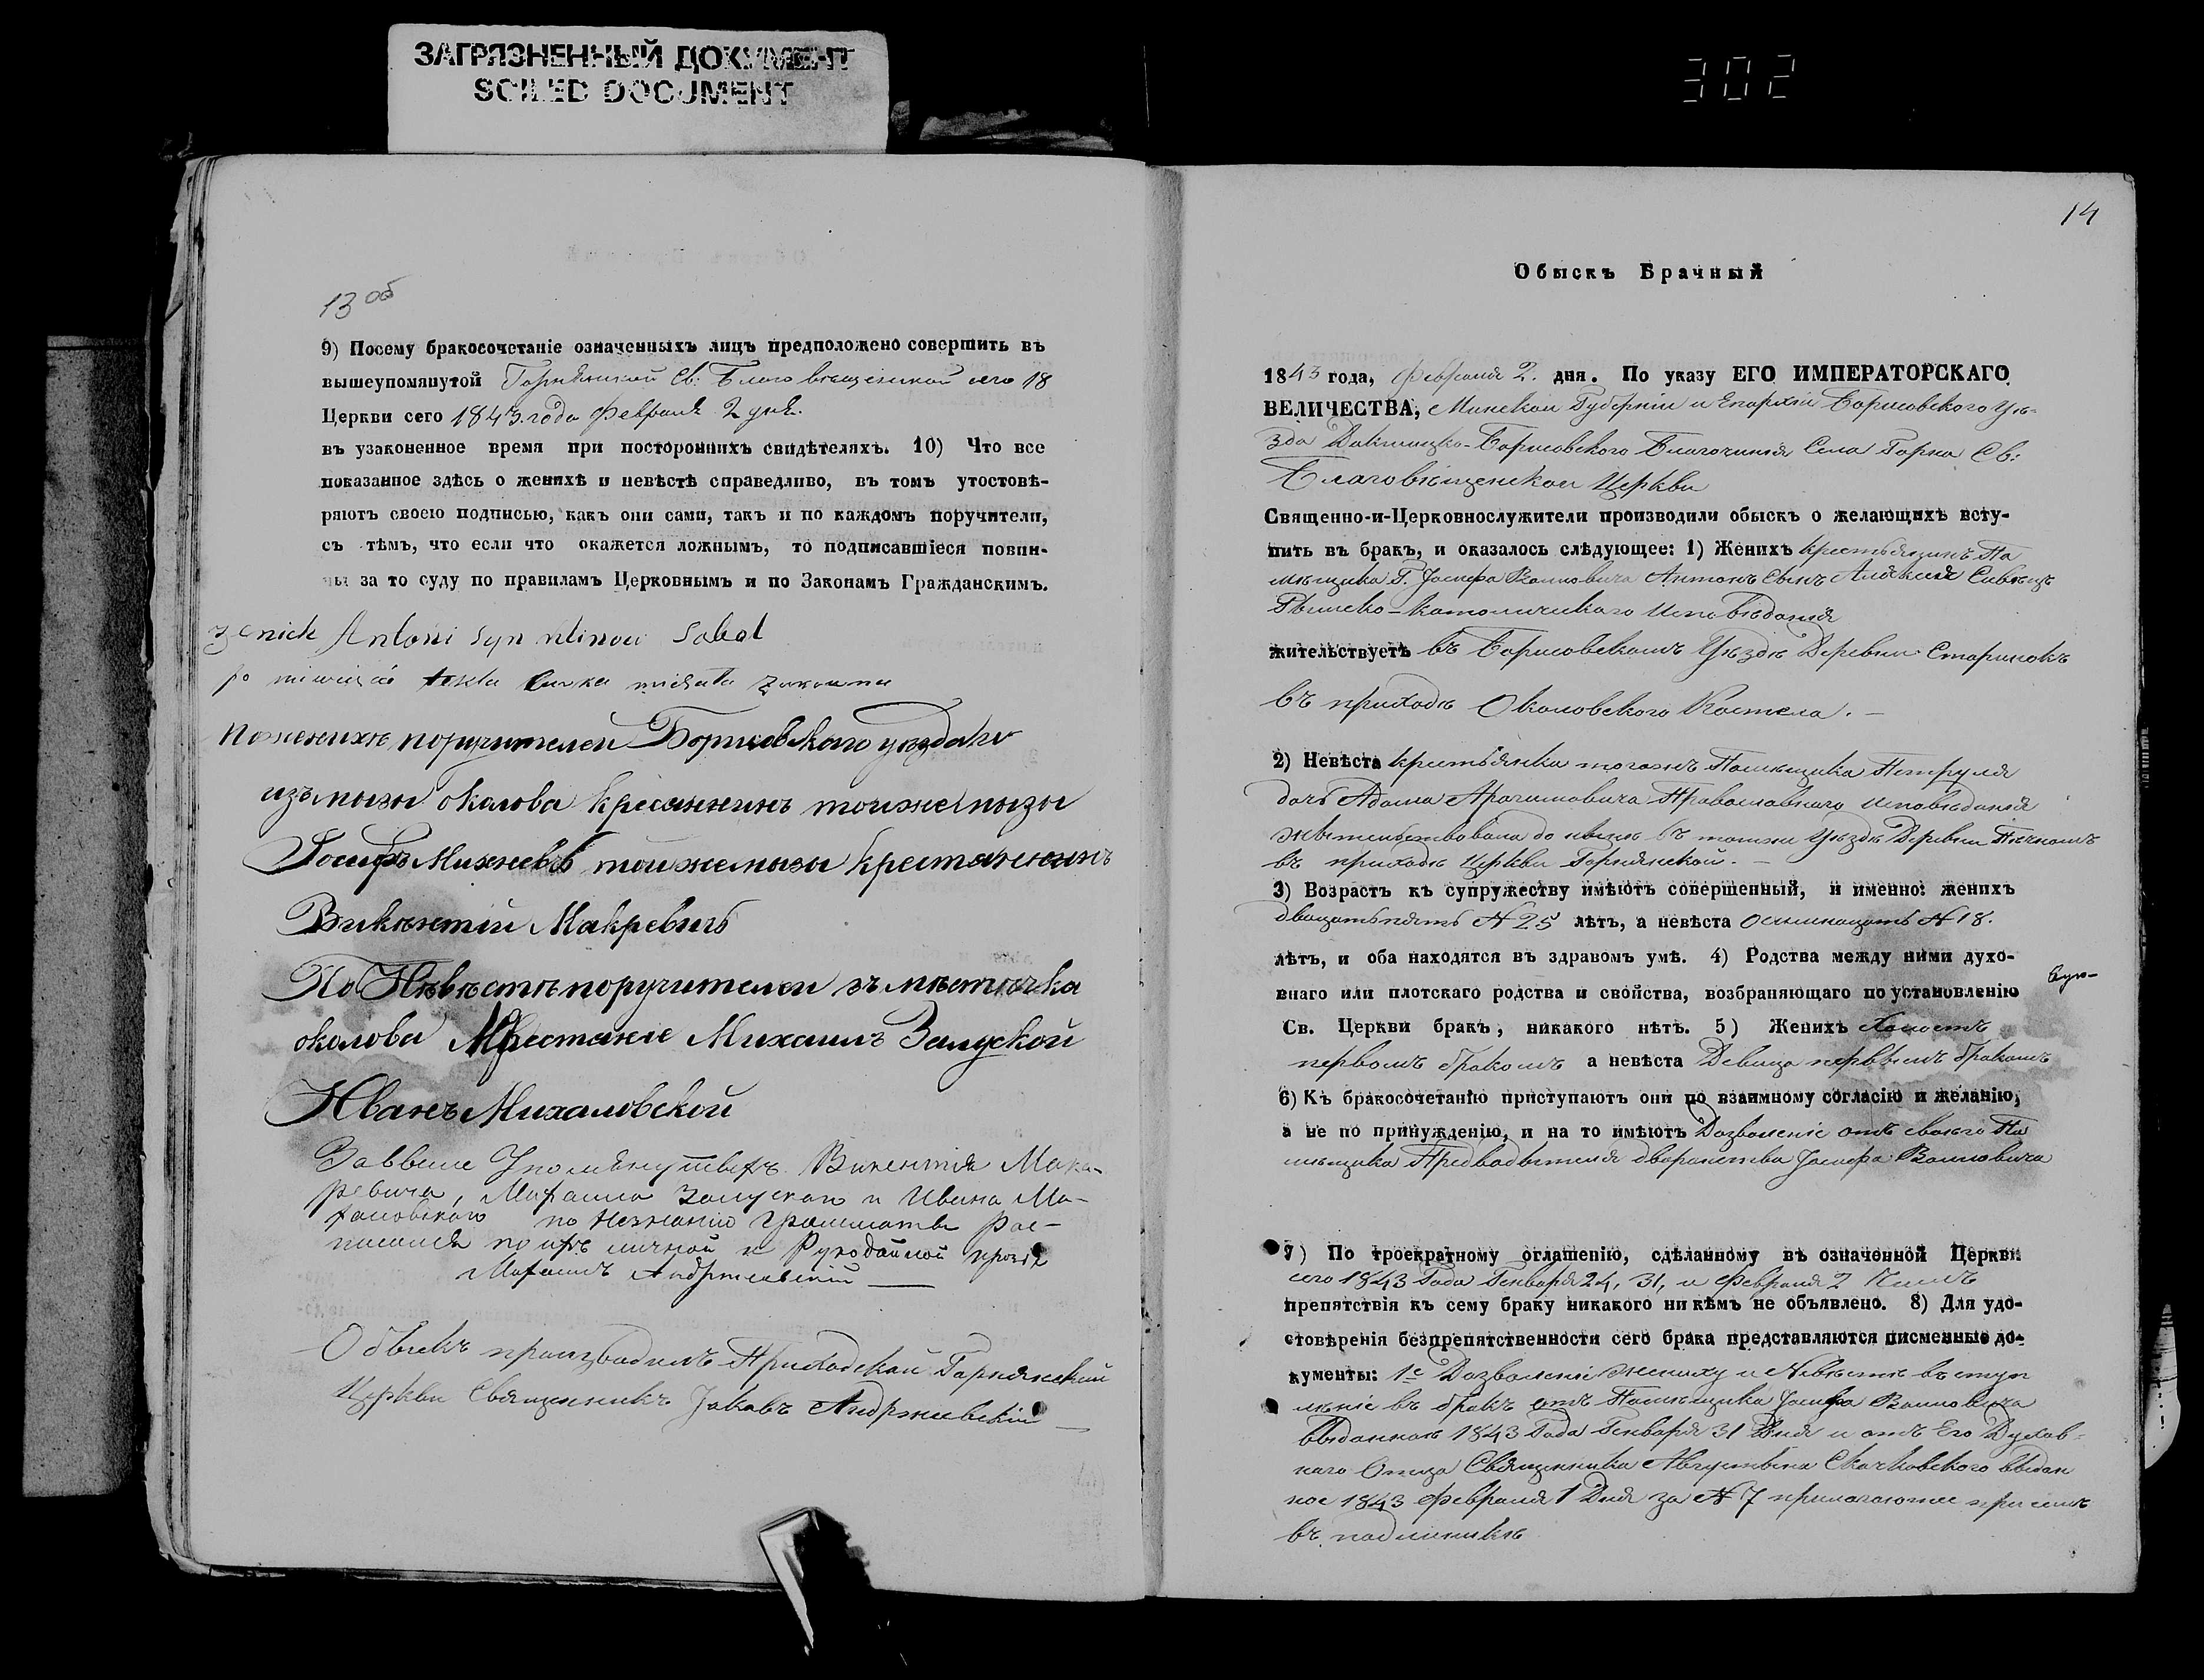 ЗАГРЯЗНЕННЫЙ ДОКУМЕНТ
SOILED DOCUMENT
302
13 об
9) Посему бракосочетаніе означенныхъ лицъ предположено совершить въ
вышеупомянутой Горнянской Св: Благовещенской сего 18
Церкви сего 1843 года февраля 2 дня.
въ узаконенное время при постороннихъ свидѣтеляхъ. 10) Что все
показанное здѣсь о женихѣ и невѣстѣ справедливо, въ томъ утостовѣ-
ряютъ своею подписью, какъ они сами, такъ и по каждомъ поручители,
съ тѣмъ, что если что окажется ложнымъ, то подписавшіеся повин-
ны за то суду по правиламъ Церковнымъ и по Законамъ Гражданскимъ.
Antoni syn
По женихѣ поручителей Борисовского уѣзда
изъ мызы околова кресянинъ тойже мызы
Іосифъ Михневъ тойже мызы крестянинъ
Викентій Макревичъ
По Невѣсте поручители зъ мѣстечка
околова Крестяне Михаилъ Залуской
Иванъ Михаловской
За выше Упомянутыхъ Викентія Мака-
ревича, Михаила Залускаго и Ивана Ми-
халовского по незнанію Грамматы рос-
писался по ихъ личной и Рукодайной прозбе
Михаилъ Андржеевскій
Обыскъ производилъ Приходской Горнянской
Церкви Священникъ Іаковъ Андржеевскій
14
Обыскъ Брачный
1843 года, февраля 2. дня. По указу ЕГО ИМПЕРАТОРСКАГО
ВЕЛИЧЕСТВА, Минской Губерніи и Епархіи Борисовского Уѣ-
зда Докшицко-Борисовского Благочинія Села Горна Св:
Благовѣщенской Церкви
Священно-и-Церковнослужители производили обыскъ о желающихъ всту-
пить въ бракъ, и оказалось слѣдующее: 1) Женихъ крестьянинъ По
мѣщика Г. Іосифа Воловича Антонъ Сынъ
Рымско-католическаго Исповѣданія
жительствуетъ въ Борисовскомъ Уѣздѣ Деревни Старинокъ
въ приходѣ Околовского Костела.
2) Невѣста крестьянка тогожъ Помѣщика Петруля
дочь Адама Православнаго исповѣданія
жительствовала до нынѣ въ томже Уѣздѣ Деревни
въ приходѣ Церкви Горнянской.
3) Возрастъ къ супружеству имѣютъ совершенный, и именно: женихъ
двацать пять № 25 лѣтъ, а невѣста осымнацать № 18.
лѣтъ, и оба находятся въ здравомъ умѣ. 4) Родства между ними духо-
внаго или плотскаго родства и свойства, возбраняющаго по установленію
Св. Церкви бракъ, никакого нѣтъ. 5) Женихъ Холостъ
первомъ бракомъ а невѣста Девица первымъ бракомъ
6) Къ бракосочетанію приступаютъ они по взаимному согласію и желанію,
а не по принужденію, и на то имѣютъ Дозволеніе отъ своего По
мѣщика Предводытеля дворанства Іосифа Воловича
7) По троекратному оглашенію, сдѣланному въ означенной Церкви
сего 1843 Года Генваря 24, 31, и февраля 2 Числъ
препятствія къ сему браку никакого ни кѣмъ не объявлено. 8) Для удо-
стовѣренія безпрепятственности сего брака представляются писменные до-
кументы: 1е Дозволеніе жениху и Невѣстѣ въ ступ
леніе въ бракъ отъ Помѣщика Іосифа Воловича
выданное 1843 Года Генваря 31 Дня и отъ Его Духов-
наго Отца Священника Августына Скачковского выдан
ное 1843 февраля 1 Дня за № 7 прилагаютсе при семъ
въ подлинникѣ